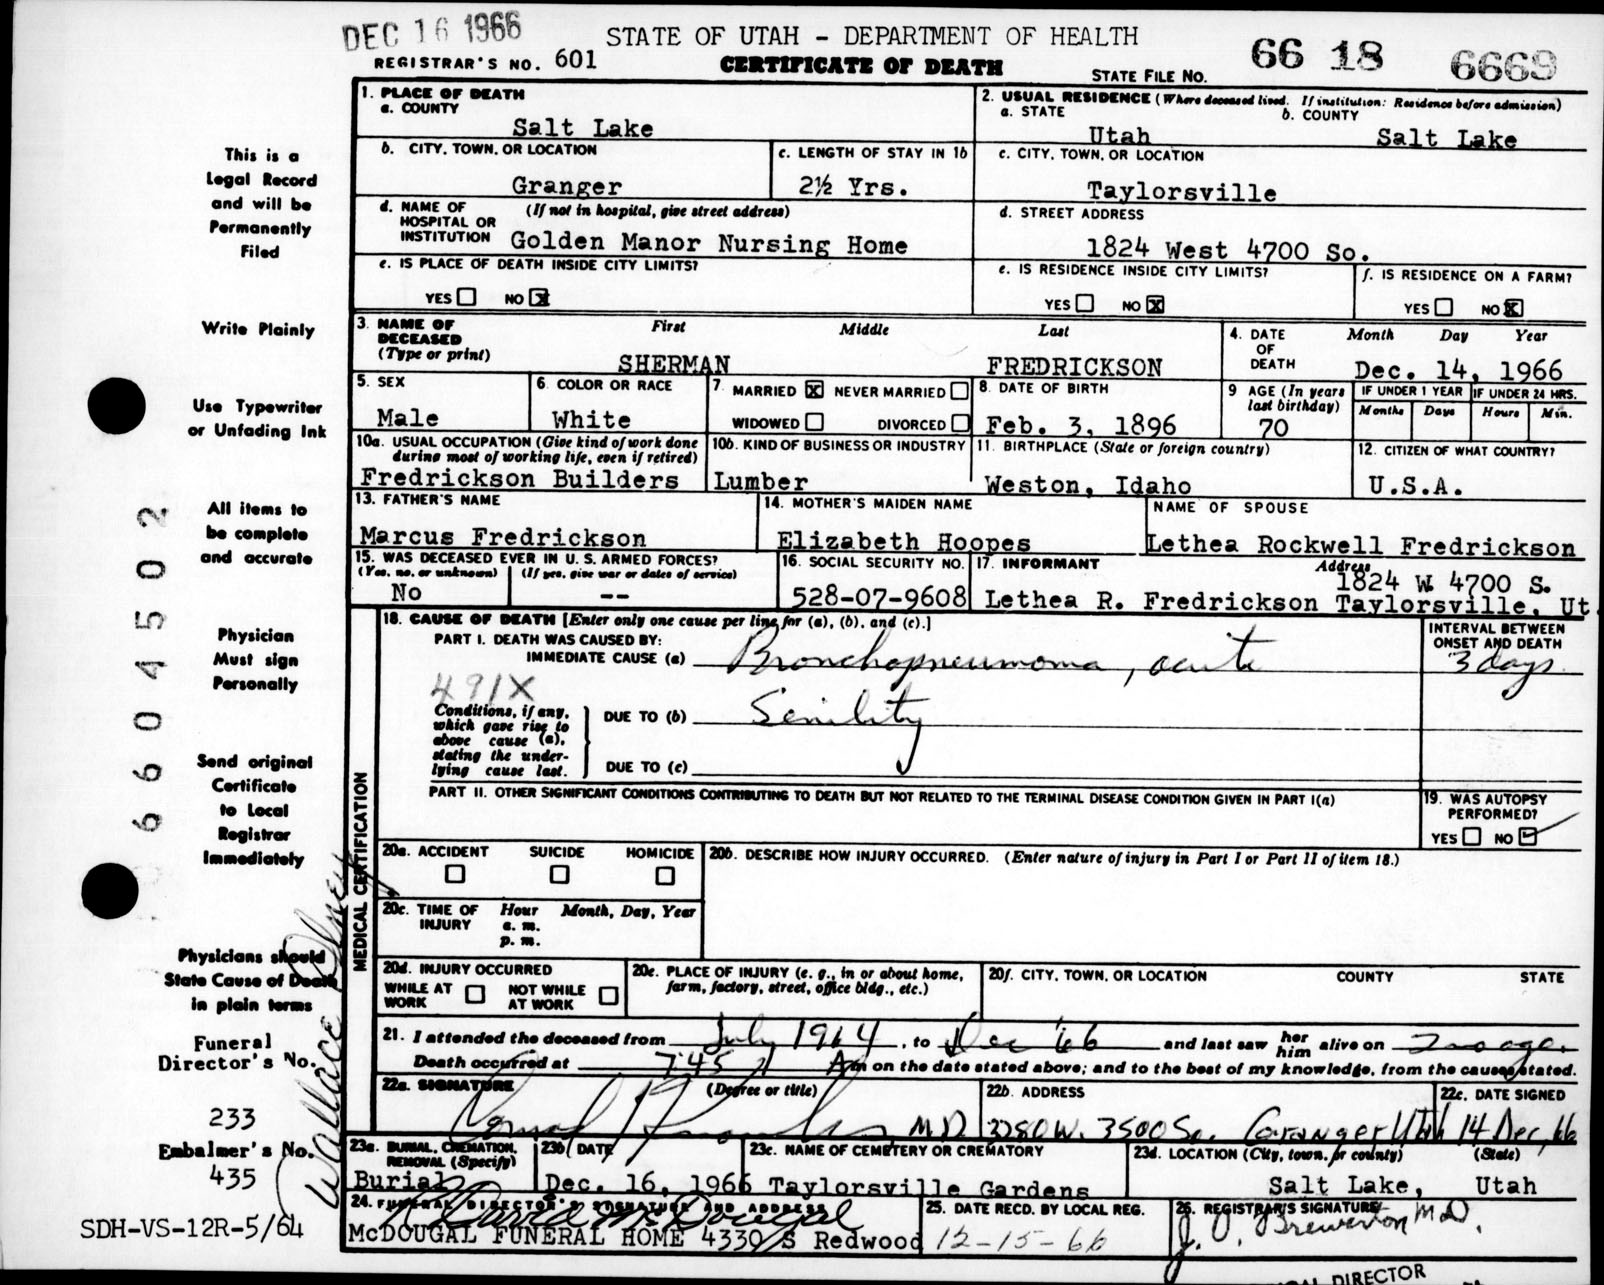 DEC 16 1966
STATE OF UTAH - DEPARTMENT OF HEALTH
REGISTRAR'S NO. 601
CERTIFICATE OF DEATH
STATE FILE NO. 66 18 6669
1. PLACE OF DEATH
a. COUNTY
Salt Lake
2. USUAL RESIDENCE (Where deceased lived. If institution: Residence before admission)
a. STATE
Utah
b. COUNTY
Salt Lake
b. CITY, TOWN, OR LOCATION
Granger
c. LENGTH OF STAY IN 1b
2½ Yrs.
c. CITY, TOWN, OR LOCATION
Taylorsville
d. NAME OF HOSPITAL OR INSTITUTION
(If not in hospital, give street address)
Golden Manor Nursing Home
d. STREET ADDRESS
1824 West 4700 So.
e. IS PLACE OF DEATH INSIDE CITY LIMITS?
YES NO X
e. IS RESIDENCE INSIDE CITY LIMITS?
YES NO X
f. IS RESIDENCE ON A FARM?
YES NO X
3. NAME OF DECEASED
(Type or print)
First Middle Last
SHERMAN FREDRICKSON
4. DATE OF DEATH
Month Day Year
Dec. 14, 1966
5. SEX
Male
6. COLOR OR RACE
White
7. MARRIED X NEVER MARRIED
WIDOWED DIVORCED
8. DATE OF BIRTH
Feb. 3, 1896
9 AGE (In years last birthday)
70
IF UNDER 1 YEAR
Months Days
IF UNDER 24 HRS.
Hours Min.
10a. USUAL OCCUPATION (Give kind of work done during most of working life, even if retired)
Fredrickson Builders
10b. KIND OF BUSINESS OR INDUSTRY
Lumber
11. BIRTHPLACE (State or foreign country)
Weston, Idaho
12. CITIZEN OF WHAT COUNTRY?
U.S.A.
13. FATHER'S NAME
Marcus Fredrickson
14. MOTHER'S MAIDEN NAME
Elizabeth Hoopes
NAME OF SPOUSE
Lethea Rockwell Fredrickson
15. WAS DECEASED EVER IN U. S. ARMED FORCES?
(Yes, no, or unknown) (If yes, give war or dates of service)
No --
16. SOCIAL SECURITY NO.
528-07-9608
17. INFORMANT
Address
1824 W. 4700 S.
Lethea R. Fredrickson Taylorsville, Ut.
18. CAUSE OF DEATH [Enter only one cause per line for (a), (b), and (c).]
PART I. DEATH WAS CAUSED BY:
IMMEDIATE CAUSE (a) Bronchopneumonia, acute
INTERVAL BETWEEN ONSET AND DEATH
3 days
491X
Conditions, if any, which gave rise to above cause (a), stating the underlying cause last.
DUE TO (b) Senility
DUE TO (c)
PART II. OTHER SIGNIFICANT CONDITIONS CONTRIBUTING TO DEATH BUT NOT RELATED TO THE TERMINAL DISEASE CONDITION GIVEN IN PART I(a)
19. WAS AUTOPSY PERFORMED?
YES NO
20a. ACCIDENT SUICIDE HOMICIDE
20b. DESCRIBE HOW INJURY OCCURRED. (Enter nature of injury in Part I or Part II of item 18.)
20c. TIME OF INJURY
Hour Month, Day, Year
a. m.
p. m.
20d. INJURY OCCURRED
WHILE AT WORK
NOT WHILE AT WORK
20e. PLACE OF INJURY (e. g., in or about home, farm, factory, street, office bldg., etc.)
20f. CITY, TOWN, OR LOCATION COUNTY STATE
21. I attended the deceased from July 1964, to Dec '66 and last saw her him alive on 2 mo ago.
Death occurred at 7:45 Am on the date stated above; and to the best of my knowledge, from the causes stated.
22a. SIGNATURE
(Degree or title)
M.D.
22b. ADDRESS
3280 W. 3500 So. Granger Utah
22c. DATE SIGNED
14 Dec, 66
23a. BURIAL, CREMATION, REMOVAL (Specify)
Burial
23b. DATE
Dec. 16, 1966
23c. NAME OF CEMETERY OR CREMATORY
Taylorsville Gardens
23d. LOCATION (City, town, or county) (State)
Salt Lake, Utah
24. FUNERAL DIRECTOR'S SIGNATURE AND ADDRESS
McDOUGAL FUNERAL HOME 4330 S Redwood
25. DATE RECD. BY LOCAL REG.
12-15-66
26. REGISTRAR'S SIGNATURE
J. O. Brewerton M.D.
MEDICAL CERTIFICATION
This is a
Legal Record
and will be
Permanently
Filed
Write Plainly
Use Typewriter
or Unfading Ink
All items to
be complete
and accurate
Physician
Must sign
Personally
Send original
Certificate
to Local
Registrar
Immediately
Physicians should
State Cause of Death
in plain terms
Funeral
Director's No.
233
Embalmer's No.
435
SDH-VS-12R-5/64
6604502
Wallace
DIRECTOR